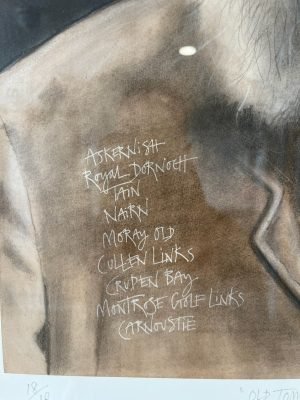 ASKERNISH
ROYAL DORNOCH
TAIN
NAIRN
MORAY OLD
CULLEN LINKS
CRUDEN BAY
MONTROSE GOLF LINKS
CARNOUSTIE
"OLD TOM